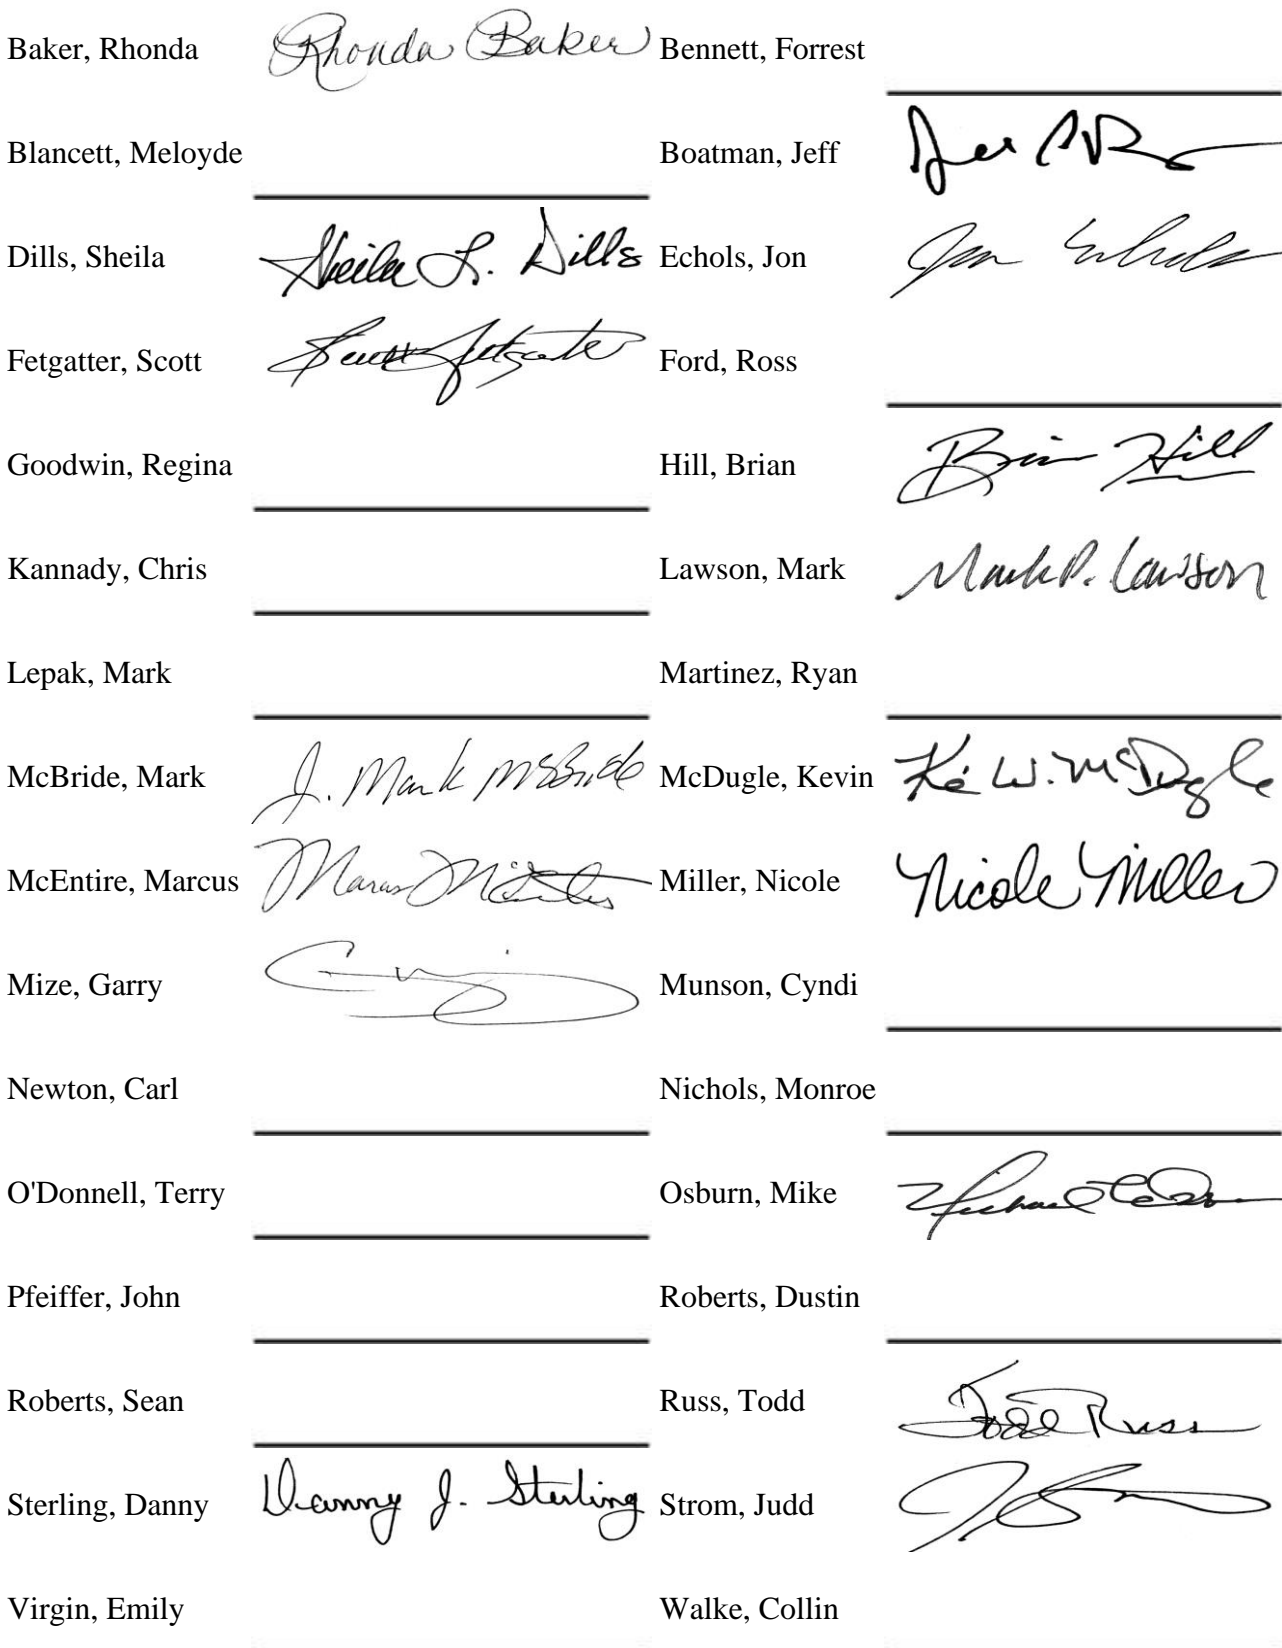 Baker, Rhonda Rhonda Baker Bennett, Forrest
Blancett, Meloyde Boatman, Jeff
Dills, Sheila Sheila L. Dills Echols, Jon Jon Echols
Fetgatter, Scott Scott Fetgatter Ford, Ross
Goodwin, Regina Hill, Brian Brian Hill
Kannady, Chris Lawson, Mark Mark P. Lawson
Lepak, Mark Martinez, Ryan
McBride, Mark J. Mark McBride McDugle, Kevin W. McDugle
McEntire, Marcus Marcus Miller, Nicole Nicole Miller
Mize, Garry Munson, Cyndi
Newton, Carl Nichols, Monroe
O'Donnell, Terry Osburn, Mike Michael
Pfeiffer, John Roberts, Dustin
Roberts, Sean Russ, Todd Todd Russ
Sterling, Danny Danny J. Sterling Strom, Judd
Virgin, Emily Walke, Collin